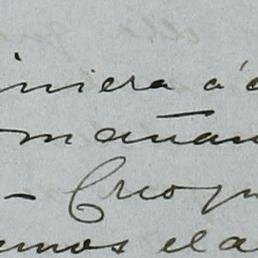 iniera á c
mañan
– Creo qu
emos el a